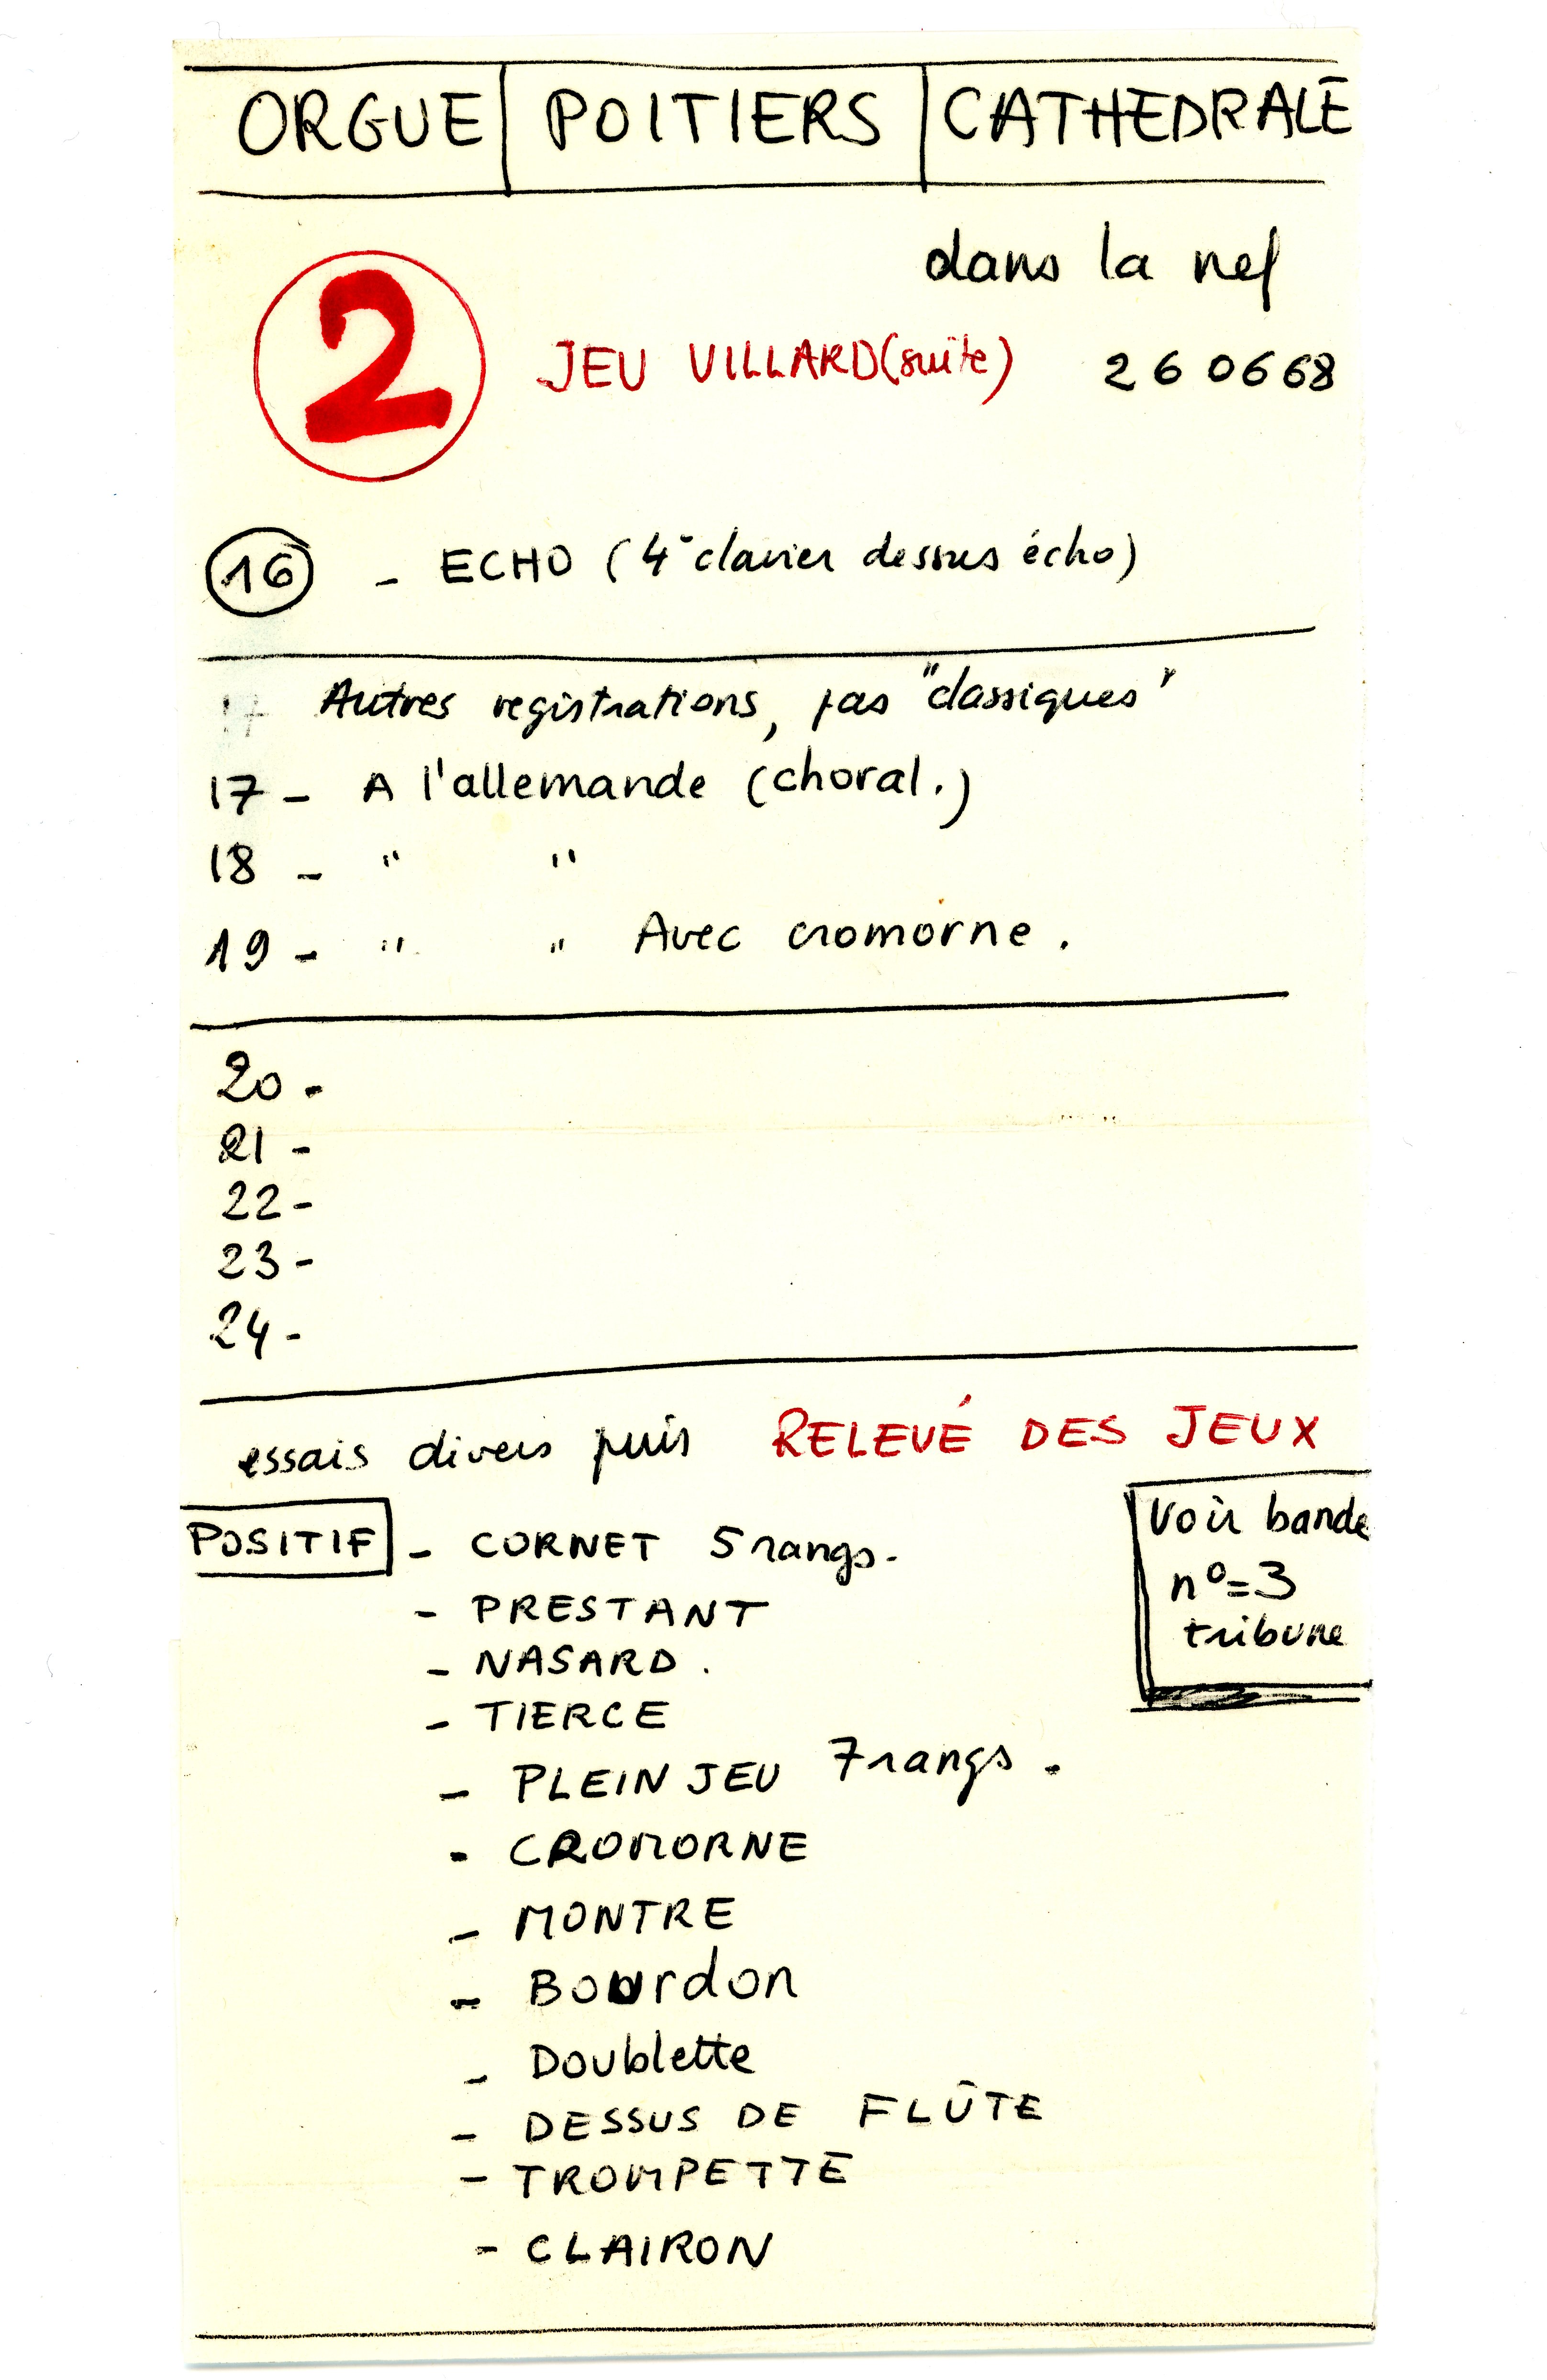 ORGUE POITIERS CATHEDRALE
dans la nef
2 JEU VILLARD (suite) 260668
16 - ECHO (4e clavier dessus écho)
17 Autres registrations, pas "classiques"
17 - A l'allemande (choral.)
18 - " "
19 - " " Avec cromorne.
20 -
21 -
22 -
23 -
24 -
essais divers puis RELEVÉ DES JEUX
Voir bande
n°=3
tribune
POSITIF - CORNET 5 rangs.
- PRESTANT
- NASARD.
- TIERCE
- PLEIN JEU 7 rangs.
- CROMORNE
- MONTRE
- Bourdon
- Doublette
- DESSUS DE FLÛTE
- TROMPETTE
- CLAIRON